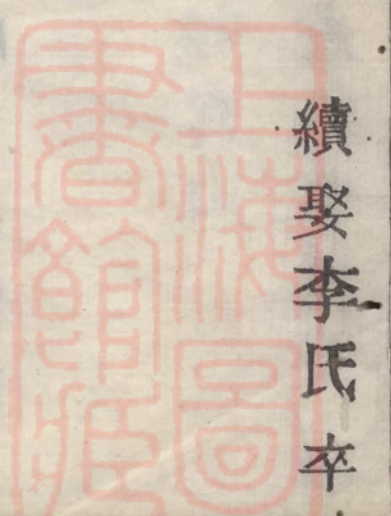 續娶李氏卒
上海圖
書館藏